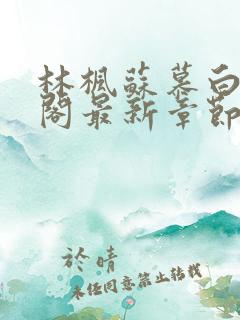 林楓蘇慕白
閣最新章節
於晴
未经同意禁止转载